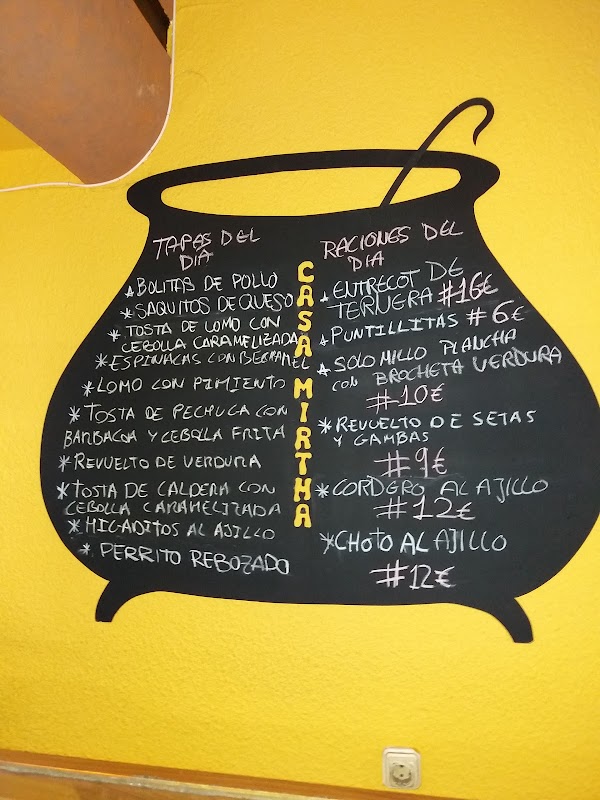 TAPAS DEL
DIA
* BOLITAS DE POLLO
* SAQUITOS DE QUESO
* TOSTA DE LOMO CON
CEBOLLA CARAMELIZADA
* ESPINACAS CON BECHAMEL
* LOMO CON PIMIENTO
* TOSTA DE PECHUGA CON
BARBACOA Y CEBOLLA FRITA
* REVUELTO DE VERDURA
* TOSTA DE CALDERA CON
CEBOLLA CARAMELIZADA
* HIGADITOS AL AJILLO
* PERRITO REBOZADO
CASA MIRTHA
RACIONES DEL
DIA
* ENTRECOT DE
TERNERA #16€
* PUNTILLITAS #6€
* SOLOMILLO PLANCHA
CON BROCHETA VERDURA
#10€
* REVUELTO DE SETAS
Y GAMBAS
#9€
* CORDERO AL AJILLO
#12€
* CHOTO AL AJILLO
#12€